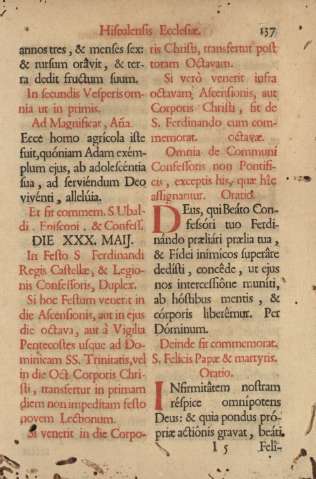 Hispalensis Ecclesiæ. 137
annos tres, & menses sex:
& rursum orávit, & ter-
ra dedit fructum suum.
In secundis Vesperis om-
nia ut in primis.
Ad Magnificat, Aña.
Ecce homo agrícola iste
fuit, quóniam Adam exém-
plum ejus, ab adolescéntia
sua, ad serviéndum Deo
vivénti, allelúia.
Et fit commem. S. Ubal-
di. Episcopi, & Confess.
DIE XXX. MAIJ.
In Festo S Ferdinandi
Regis Castellæ, & Legio-
nis Confessoris, Duplex.
Si hoc Festum venerit in
die Ascensionis, aut in ejus
die octava, aut à Vigilia
Pentecostes usque ad Do-
minicam SS. Trinitatis, vel
in die Oct. Corporis Chri-
sti, transfertur in primam
diem non impeditam festo
novem Lectionum.
Si venerit in die Corpo-
ris Christi, transfertur post
totam Octavam.
Si verò venerit infra
octavam Ascensionis, aut
Corporis Christi, fit de
S. Ferdinando cum com-
memorat. octavæ.
Omnia de Communi
Confessoris non Pontifi-
cis, exceptis his, quæ hîc
assignantur. Oratio.
DEus, qui Beáto Con-
fessóri tuo Ferdi-
nándo præliári prælia tua,
& Fídei inimícos superáre
dedísti, concéde, ut ejus
nos intercessióne muníti,
ab hóstibus mentis, &
córporis liberémur. Per
Dóminum.
Deinde fit commemorat.
S. Felicis Papæ & martyris.
Oratio.
INfirmitátem nostram
réspice omnípotens
Deus: & quia pondus pró-
priæ actiónis gravat, beáti
I 5 Feli-